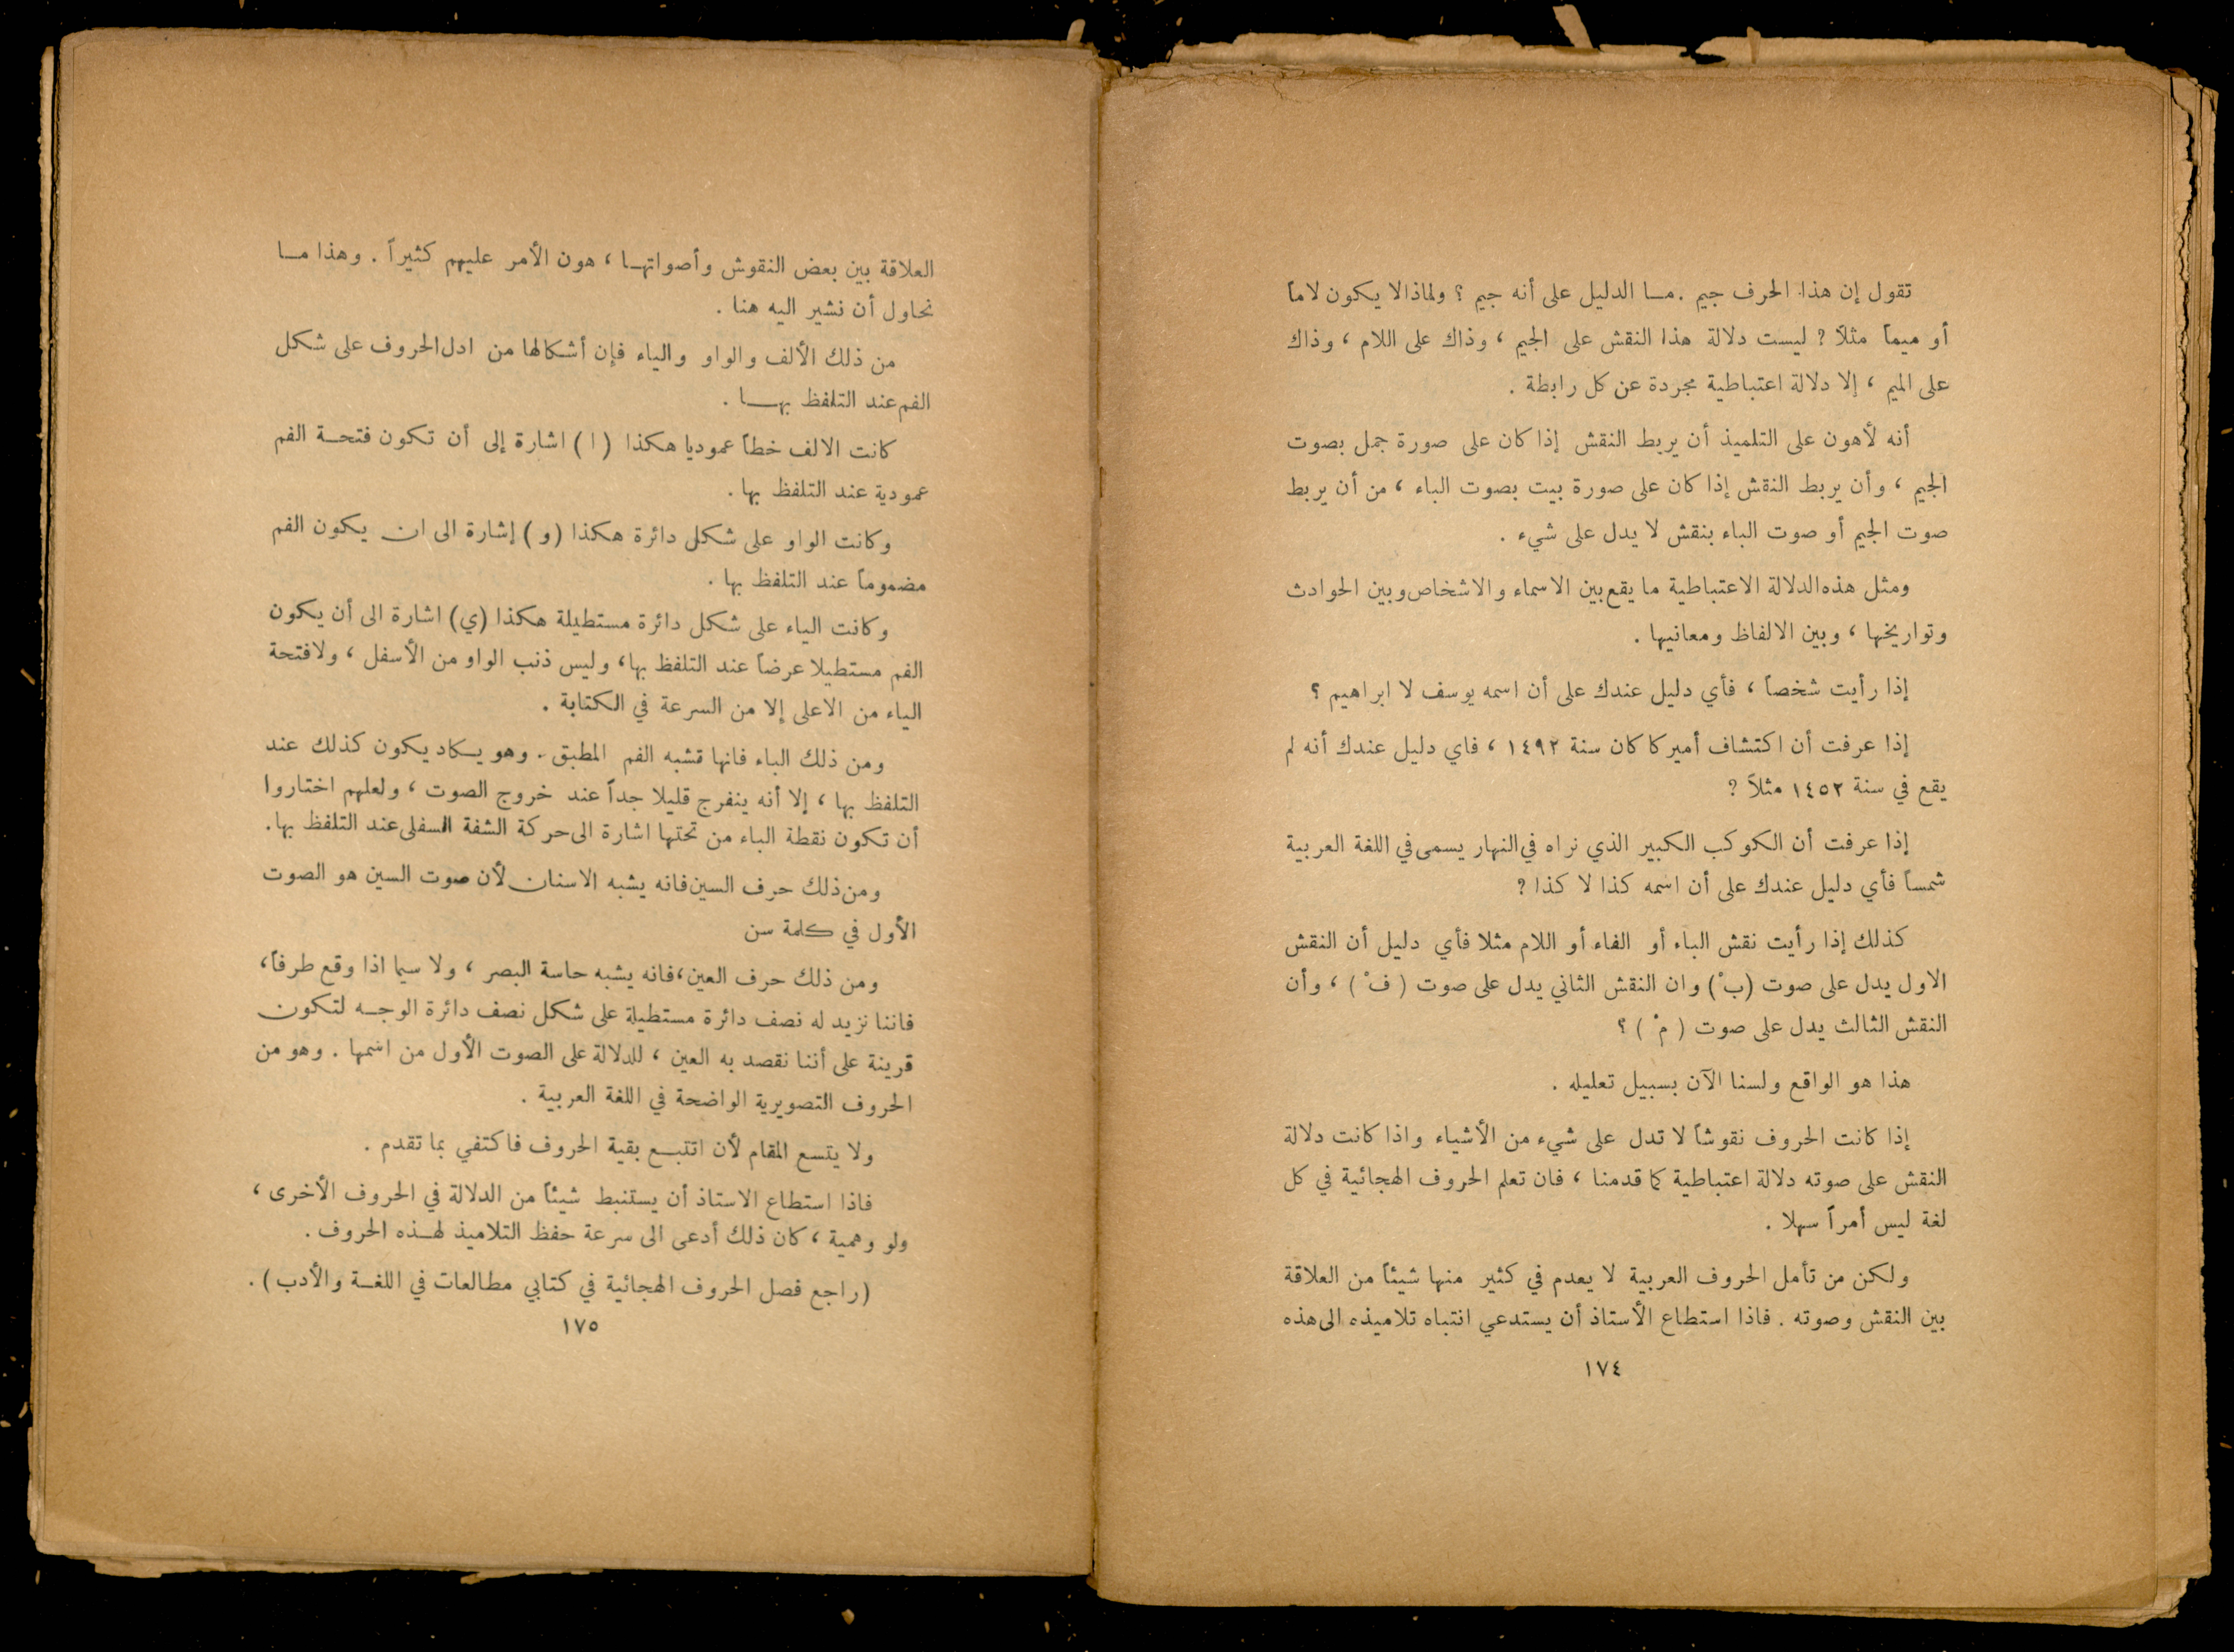 تقول إن هذا الحرف جيم . مـا الدليل على أنه جيم ؟ ولماذا لا يكون لاماً
أو ميماً مثلاً ؟ ليست دلالة هذا النقش على الجيم ، وذاك على اللام ، وذاك
على الميم ، إلا دلالة اعتباطية مجردة عن كل رابطة .
أنه لأهون على التلميذ أن يربط النقش إذا كان على صورة جمل بصوت
الجيم ، وأن يربط النقش إذا كان على صورة بيت بصوت الباء ، من أن يربط
صوت الجيم أو صوت الباء بنقش لا يدل على شيء .
ومثل هذه الدلالة الاعتباطية ما يقع بين الاسماء والاشخاص وبين الحوادث
وتواريخها ، وبين الالفاظ ومعانيها .
إذا رأيت شخصاً ، فأي دليل عندك على أن اسمه يوسف لا ابراهيم ؟
إذا عرفت أن اكتشاف أميركا كان سنة ١٤٩٢ ، فاي دليل عندك أنه لم
يقع في سنة ١٤٥٢ مثلاً ؟
إذا عرفت أن الكوكب الكبير الذي نراه في النهار يسمى في اللغة العربية
شمساً فأي دليل عندك على أن اسمه كذا لا كذا ؟
كذلك إذا رأيت نقش الباء أو الفاء أو اللام مثلا فأي دليل أن النقش
الاول يدل على صوت (بْ) وان النقش الثاني يدل على صوت ( فْ ) ، وأن
النقش الثالث يدل على صوت ( مْ ) ؟
هذا هو الواقع ولسنا الآن بسبيل تعليله .
إذا كانت الحروف نقوشاً لا تدل على شيء من الأشياء واذا كانت دلالة
النقش على صوته دلالة اعتباطية كما قدمنا ، فان تعلم الحروف الهجائية في كل
لغة ليس أمراً سهلا .
ولكن من تأمل الحروف العربية لا يعدم في كثير منها شيئاً من العلاقة
بين النقش وصوته . فاذا استطاع الأستاذ أن يستدعي انتباه تلاميذه الى هذه
١٧٤
العلاقة بين بعض النقوش وأصواتهـا ، هون الأمر عليهم كثيراً . وهذا مـا
نحاول أن نشير اليه هنا .
من ذلك الألف والواو والياء فإن أشكالها من ادل الحروف على شكل
الفم عند التلفظ بهـا .
كانت الالف خطاً عموديا هكذا (ا) اشارة إلى أن تكون فتحـة الفم
عمودية عند التلفظ بها .
وكانت الواو على شكل دائرة هكذا (و) إشارة الى ان يكون الفم
مضموماً عند التلفظ بها .
وكانت الياء على شكل دائرة مستطيلة هكذا (ي) اشارة الى أن يكون
الفم مستطيلا عرضاً عند التلفظ بها ، وليس ذنب الواو من الأسفل ، ولا فتحة
الياء من الاعلى إلا من السرعة في الكتابة .
ومن ذلك الباء فانها تشبه الفم المطبق . وهو يكاد يكون كذلك عند
التلفظ بها ، إلا أنه ينفرج قليلا جداً عند خروج الصوت ، ولعلهم اختاروا
أن تكون نقطة الباء من تحتها اشارة الى حركة الشفة السفلى عند التلفظ بها .
ومن ذلك حرف السين فانه يشبه الاسنان لأن صوت السين هو الصوت
الأول في كلمة سن
ومن ذلك حرف العين ، فانه يشبه حاسة البصر ، ولا سيما اذا وقع طرفاً ،
فاننا نزيد له نصف دائرة مستطيلة على شكل نصف دائرة الوجـه لتكون
قرينة على أننا نقصد به العين ، للدلالة على الصوت الأول من اسمها . وهو من
الحروف التصويرية الواضحة في اللغة العربية .
ولا يتسع المقام لأن اتتبـع بقية الحروف فاكتفي بما تقدم .
فاذا استطاع الاستاذ أن يستنبط شيئاً من الدلالة في الحروف الأخرى ،
ولو وهمية ، كان ذلك أدعى الى سرعة حفظ التلاميذ لهـذه الحروف .
(راجع فصل الحروف الهجائية في كتابي مطالعات في اللغـة والأدب) .
١٧٥